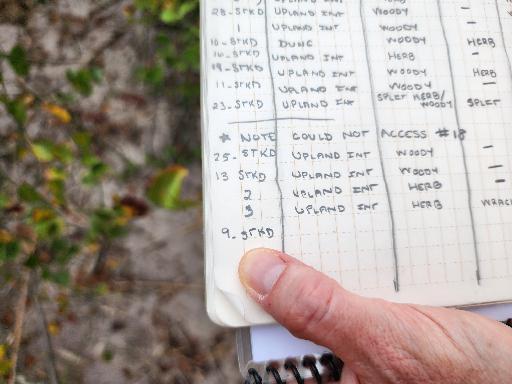 UPLAND INT HERB
28-STKD UPLAND INT WOODY -
1 UPLAND INT WOODY
10-STKD DUNE WOODY HERB
16-STKD UPLAND INT HERB -
19-STKD UPLAND INT WOODY HERB
11-STKD UPLAND INT WOODY -
23-STKD UPLAND INT SPLIT HERB/WOODY SPLIT
* NOTE COULD NOT ACCESS #18
25-STKD UPLAND INT WOODY -
13 STKD UPLAND INT WOODY -
2 UPLAND INT HERB -
3 UPLAND INT HERB WRACK
9-STKD